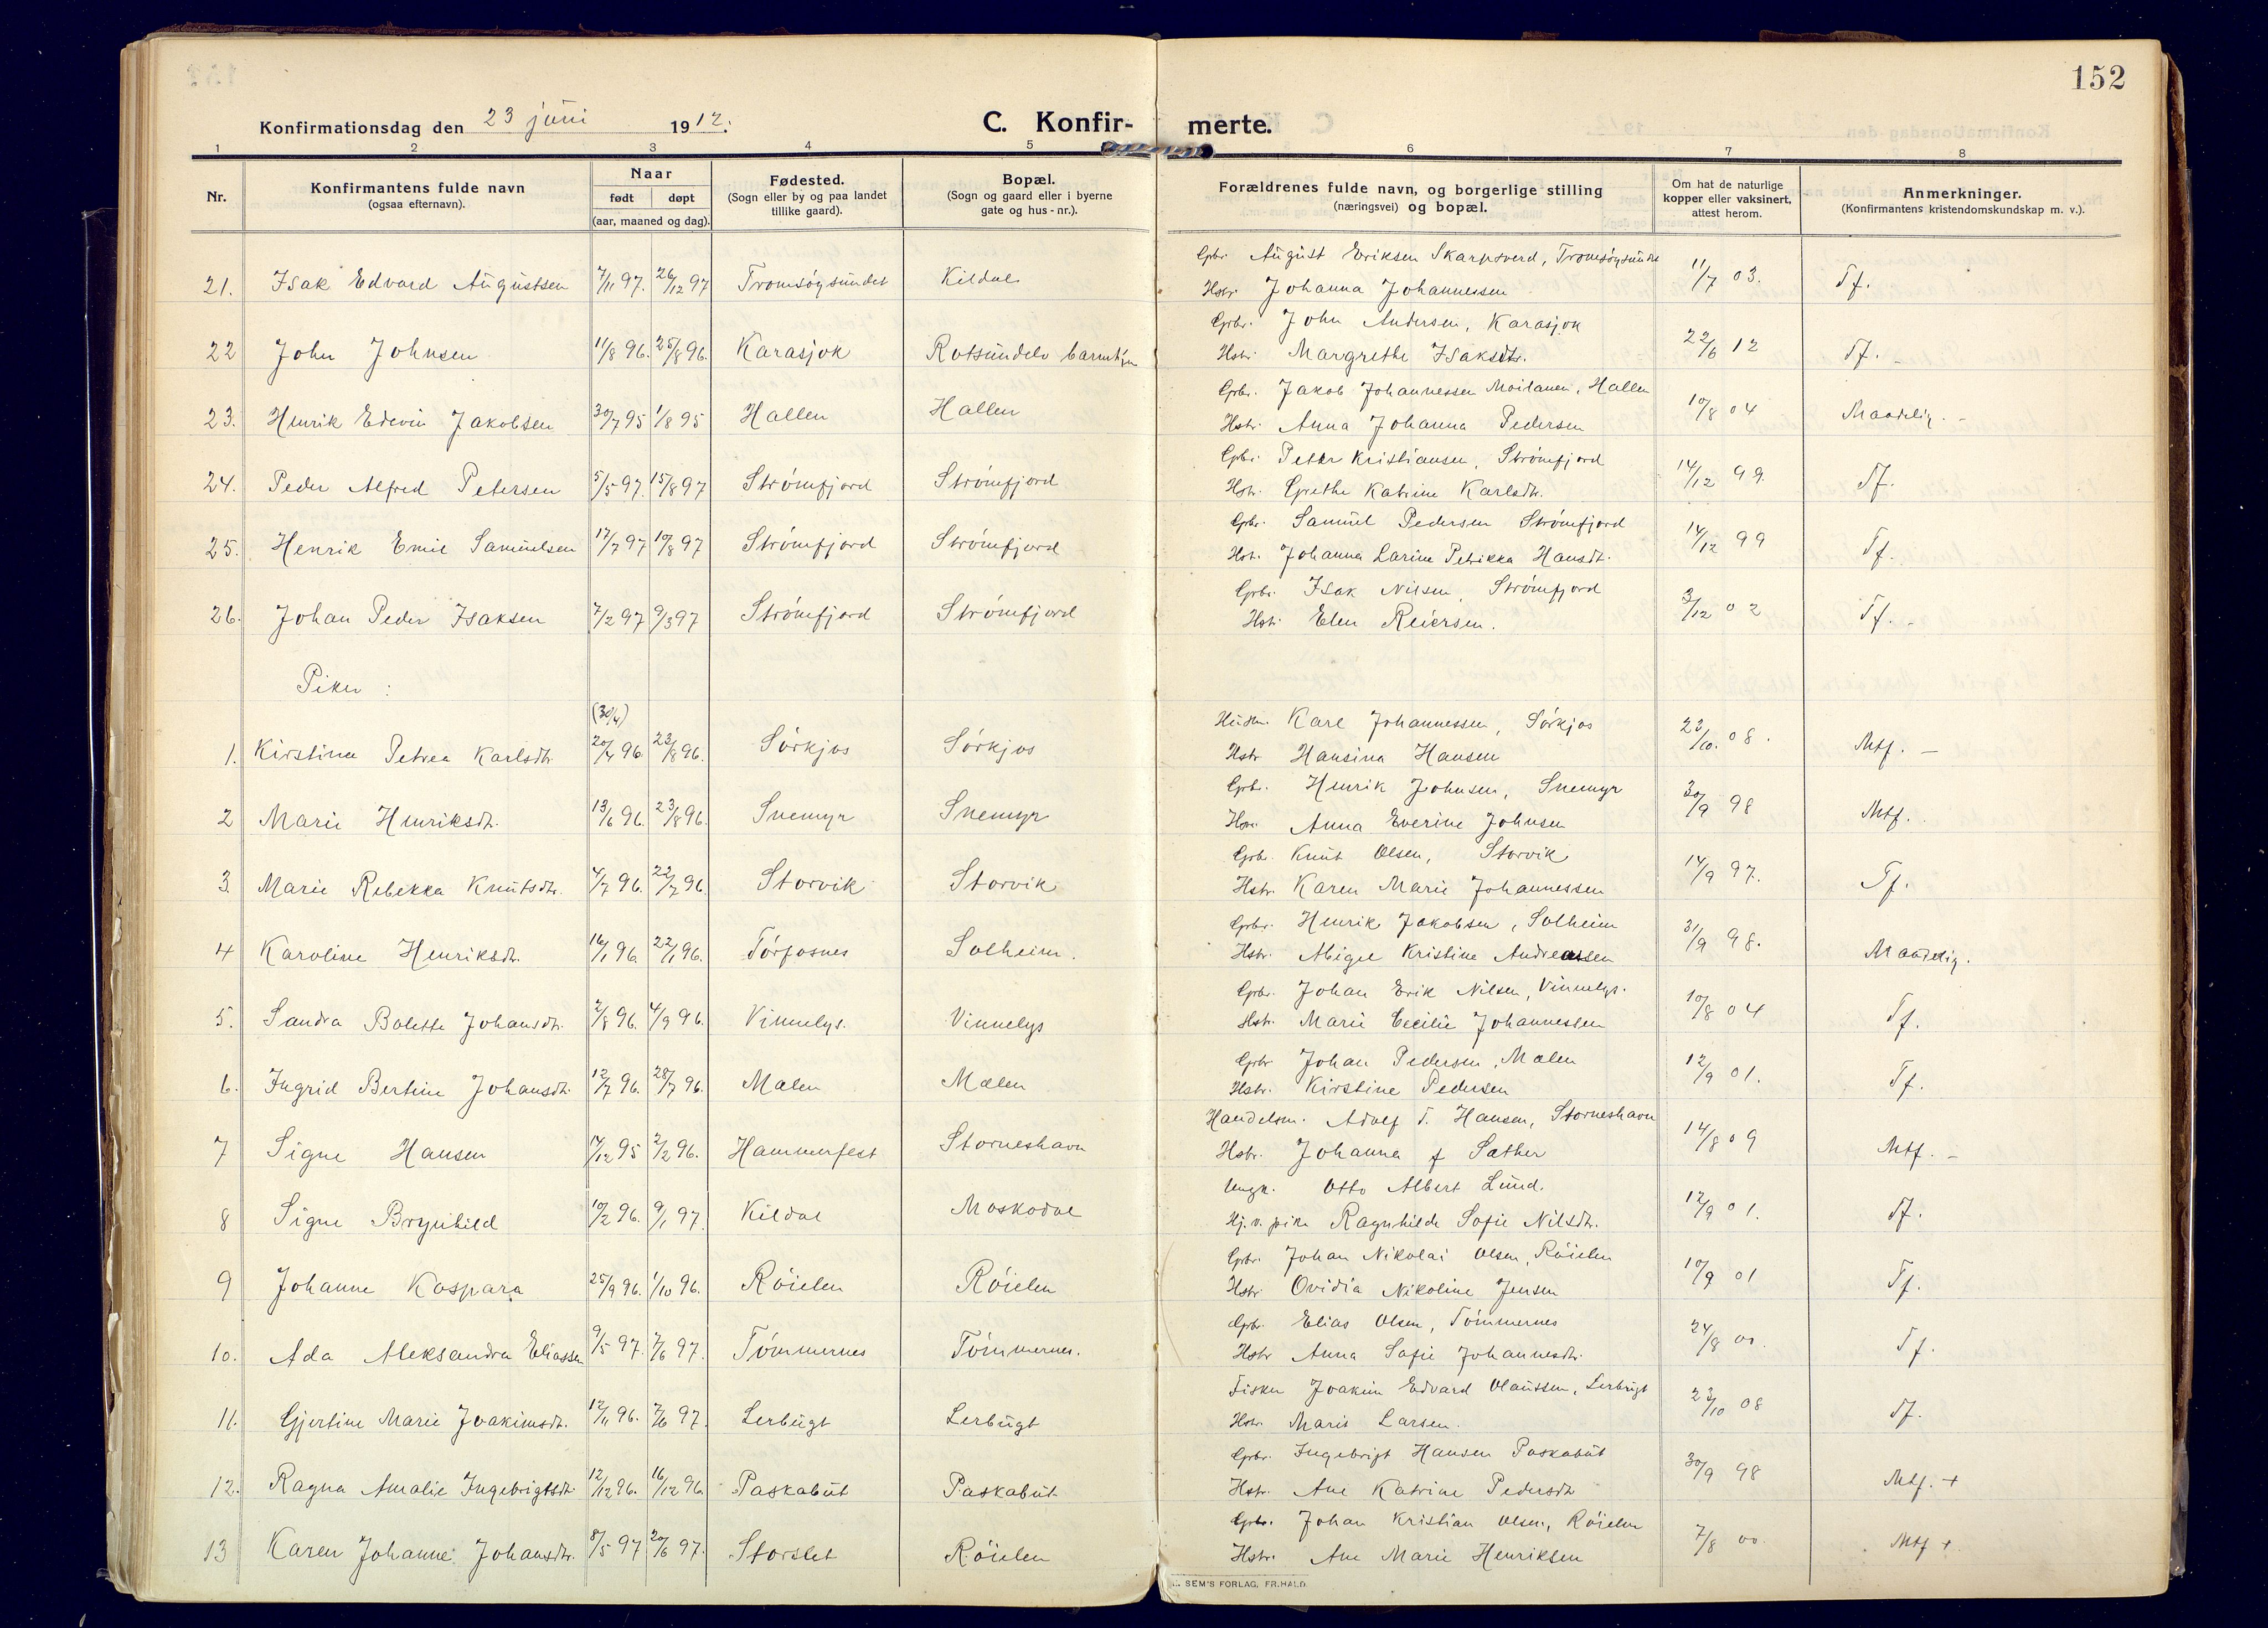 152
Konfirmationsdag den 23 juni 1912.
C. Konfir- merte.
1 2 3 4 5 6 7 8
Nr.
Konfirmantens fulde navn
(ogsaa efternavn).
Naar
født døpt
(aar, maaned og dag).
Fødested.
(Sogn eller by og paa landet
tillike gaard).
Bopæl.
(Sogn og gaard eller i byerne
gate og hus-nr.).
Forældrenes fulde navn, og borgerlige stilling
(næringsvei) og bopæl.
Om hat de naturlige
kopper eller vaksinert,
attest herom.
Anmerkninger.
(Konfirmantens kristendomskundskap m. v.).
Gbr. August Eriksen Skarpsverd, Tromsøysundet
21. Isak Edvard Augustsen 7/11 97. 26/12 97 Tromsøysundet Kildal Hstr. Johanna Johannessen 11/7 03. Tf.
Gbr. John Andersen, Karasjok
22 John Johnsen 11/8 96. 25/8 96. Karasjok Rotsundelv Hstr. Margrethe Isaksdtr. 22/6 12 Tf. -
Gbr. Jakob Johannessen Moilanen, Hallen
23. Henrik Edvin Jakobsen 30/7 95 1/8 95 Hallen Hallen Hstr. Anna Johanna Pedersen 10/8 04 Maadelig. -
Gbr. Petter Kristiansen, Strömfjord
24. Peder Alfred Petersen 5/5 97. 15/8 97 Strömfjord Strömfjord Hstr. Grethe Katrine Karlsdtr. 14/12 99. Tf.
Gbr. Samuel Pedersen Strömfjord
25. Henrik Emil Samuelsen 17/7 97 10/8 97 Strömfjord Strömfjord Hst. Johanna Larine Petrikka Hansdt. 14/12 99 Tf.
Gbr. Isak Nilsen, Strömfjord
26. Johan Peder Isaksen 7/2 97 9/3 97 Strömfjord Strömfjord Hstr. Elen Reiersen. 3/12 02 Tf. -
Piker :
(30/4)
Husm. Karl Johannessen, Sörkjos
1. Kirstine Petrea Karlsdtr. 20/4 96. 23/8 96. Sörkjos Sörkjos Hstr Hansina Hansen 23/10. 08. Mtf. -
Gbr. Henrik Johnsen, Snemyr
2 Marie Henriksdt. 13/6 96. 23/8 96. Snemyr Snemyr Hstr. Anna Everine Johnsen 30/9 98 Mtf.
Gbr. Knut Olsen, Storvik
3. Marie Rebekka Knutsdtr. 4/7 96. 22/7 96. Storvik Storvik Hstr. Karen Marie Johannessen 14/9 97. Tf.
Gbr. Henrik Jakobsen, Solheim
4 Karoline Henriksdt. 16/1 96. 22/1 96. Törfosnes Solheim. Hstr. Abigel Kristine Andreassen 31/9 98. Maadelig.
Gbr. Johan Erik Nilsen, Vinnelys.
5. Sandra Bolette Johansdt. 2/8 96. 4/9 96. Vinnelys. Vinnelys Hstr. Marie Cecilie Johannessen 10/8 04 Tf.
Gbr Johan Pedersen, Mælen
6. Ingrid Bertine Johansdt. 12/7 96. 28/7 96. Mælen Mælen Hstr. Kirstine Pedersen 12/9 01. Tf.
Handelsm. Adolf T. Hansen, Storneshavn
7 Signe Hansen 17/12 95 2/2 96. Hammerfest Storneshavn Hstr. Johanna f Sæther 14/8 09 Mtf. -
Ungk. Otto Albert Lund.
8 Signe Brynhild 10/2 96. 9/1 97. Kildal Moskodal Hj. v. pike Ragnhilde Sofie Nilsdt. 12/9 01. Tf.
Gbr. Johan Nikolai Olsen, Röielen
9 Johanne Kaspara 25/9 96. 1/10 96. Röielen Röielen Hstr Ovidia Nikoline Jensen 10/9 01 Tf.
Gbr. Elias Olsen, Tömmernes
10. Ada Aleksandra Eliassen 9/5 97. 7/6 97. Tömmernes Tömmernes. Hstr Anna Sofie Johannesdtr. 24/8 00. Tf.
Fisker Joakim Edvard Olaussen, Lerbugt
11. Gjertine Marie Joakimsdt. 12/11 96. 7/6 97. Lerbugt Lerbugt Hstr. Maris Larsen. 23/10 08 Tf.
Gbr. Ingebrigt Hansen Paskabut
12. Ragna Amalie Ingebrigtsdt. 12/12 96. 16/12 96. Paskabut Paskabut Hstr. Ane Katrine Pedersdt 30/9 98 Mtf. +
Gbr. Johan Kristian Olsen, Röielen
13 Karen Johanne Johansdtr. 8/5 97 20/6 97. Storslet Röielen Hstr. Ane Marie Henriksen 7/8 00. Mtf +
SEM'S FORLAG, FR.HALD